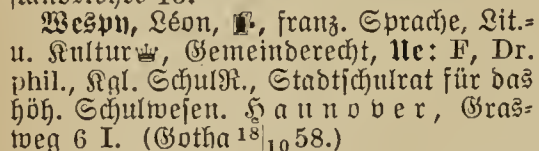 Wespy, Léon, franz. Sprache, Lit.=
u. Kultur, Gemeinderecht, Uc: F, Dr.
phil., Kgl. SchulR., Stadtschulrat für das
höh. Schulwesen. Hannover, Gras=
weg 6 I. (Gotha 18/10 58.)